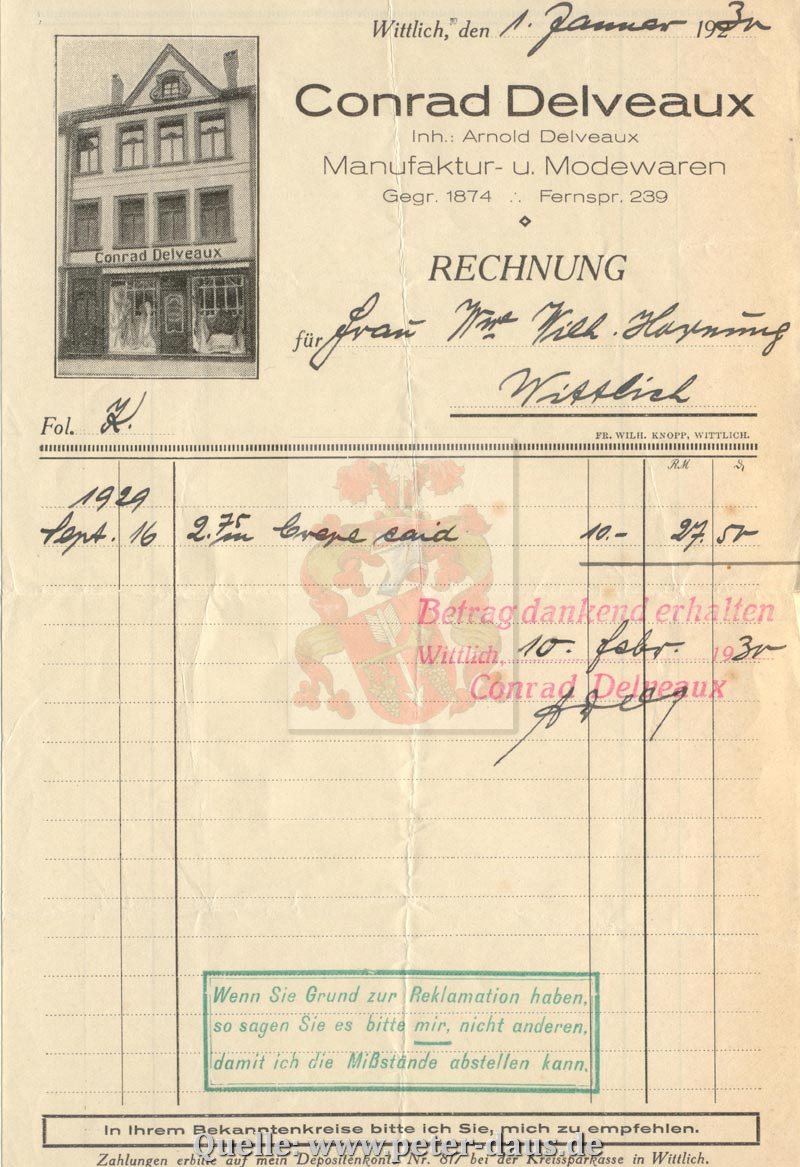 Wittlich, den 1. Januar 1930
Conrad Delveaux
Inh.: Arnold Delveaux
Manufaktur- u. Modewaren
Gegr. 1874 ∴ Fernspr. 239
Conrad Delveaux
RECHNUNG
für Frau Wwe Wilh. Hornung
Wittlich
Fol. K.
FR. WILH. KNOPP, WITTLICH.
RM
1929
Sept. 16 2.75 m Crepe said 10.- 27.50
Betrag dankend erhalten
Wittlich, 10. Febr. 1930
Conrad Delveaux
Wenn Sie Grund zur Reklamation haben,
so sagen Sie es bitte mir, nicht anderen,
damit ich die Mißstände abstellen kann.
In Ihrem Bekanntenkreise bitte ich Sie, mich zu empfehlen.
Quelle: www.peter-daus.de
Zahlungen erbitte auf mein Depositenkonto Nr. 817 bei der Kreissparkasse in Wittlich.